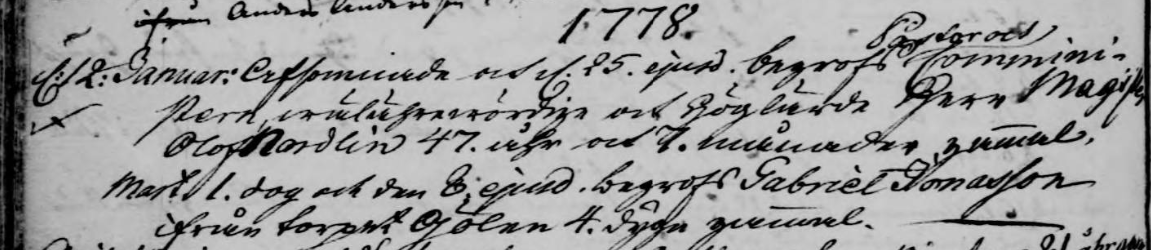 ifrån Anders Andersson
1778.
d: 2: Januar: afsomnade och d. 25. ejusd. begrofs Pastor och Commini-
stern, wälährewördige och Höglärde Herr Magist
Olof Nordlin 47. åhr och 7. månader gammal.
Mart. 1. dog och den 8. ejusd. begrofs Gabriel Jonasson
ifrån torpet Gölen 4. dygn gammal.